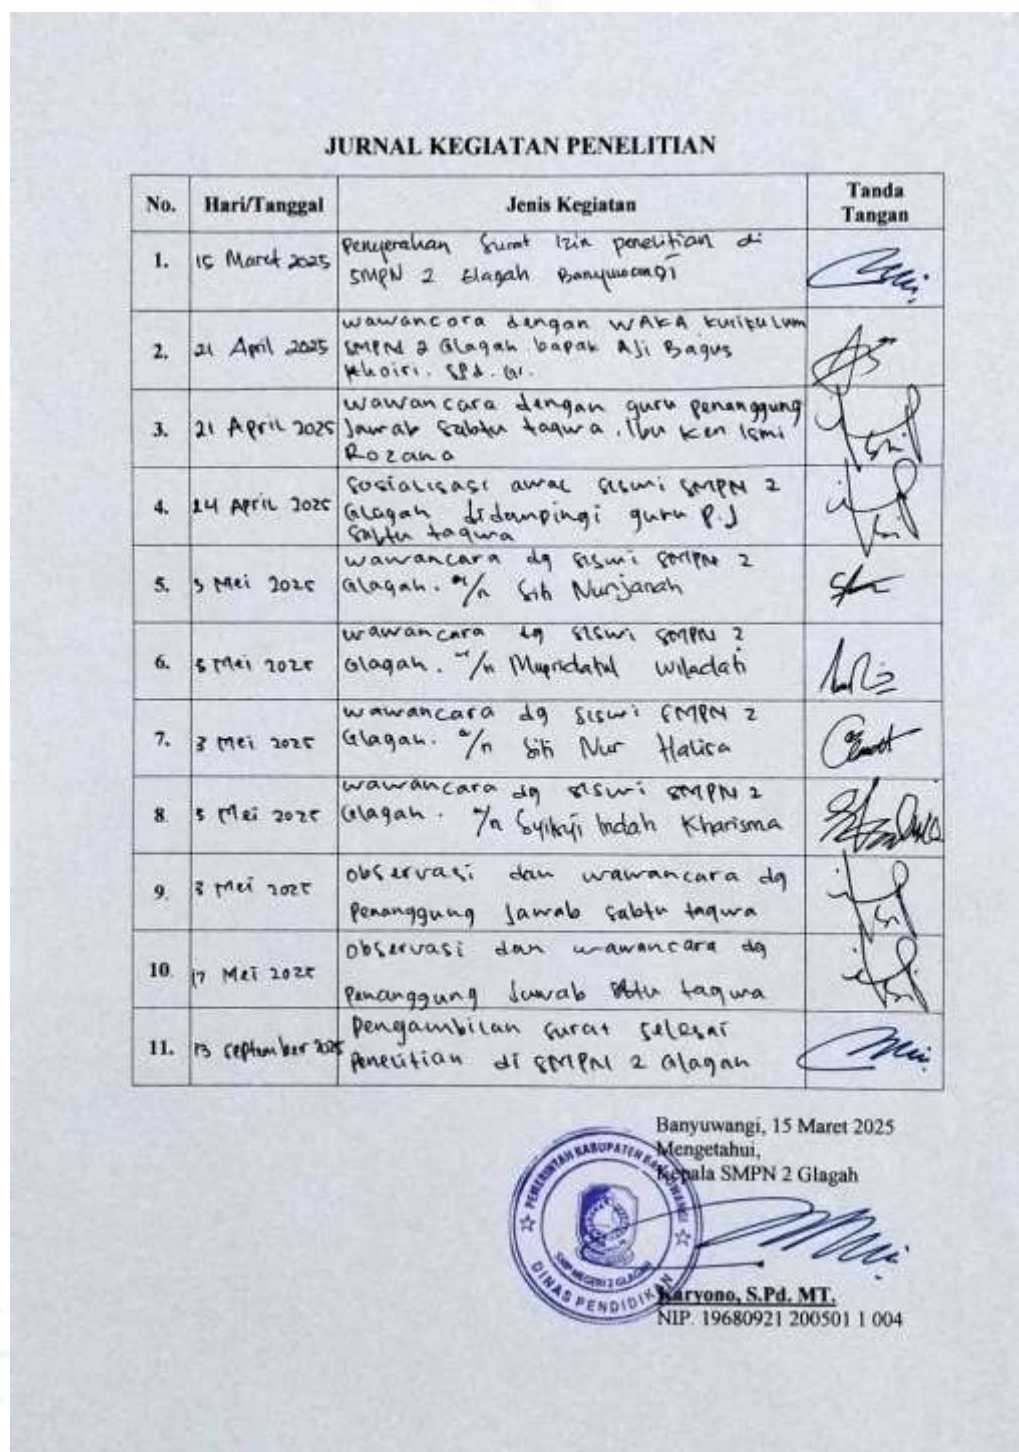 JURNAL KEGIATAN PENELITIAN
No. Hari/Tanggal Jenis Kegiatan Tanda Tangan
1. 15 Maret 2025 Penyerahan Surat Izin penelitian di
SMPN 2 Glagah Banyuwangi
2. 21 April 2025 wawancara dengan WAKA kurikulum
SMPN 2 Glagah bapak Aji Bagus
Khoiri. S.Pd. Gr.
3. 21 April 2025 wawancara dengan guru penanggung
Jawab Sabtu taqwa. Ibu Ken Ismi
Rozana
4. 24 April 2025 Sosialisasi awal siswi SMPN 2
Glagah didampingi guru P.J
Sabtu taqwa
5. 3 Mei 2025 wawancara dg siswi SMPN 2
Glagah. a/n Siti Nurjanah
6. 3 Mei 2025 wawancara dg siswi SMPN 2
Glagah. a/n Mupridatul wiladati
7. 3 Mei 2025 wawancara dg siswi SMPN 2
Glagah. a/n Siti Nur Halisa
8. 3 Mei 2025 wawancara dg siswi SMPN 2
Glagah. a/n Indah Kharisma
9. 3 Mei 2025 Observasi dan wawancara dg
Penanggung Jawab Sabtu taqwa
10. 17 Mei 2025 Observasi dan wawancara dg
Penanggung Jawab Sabtu taqwa
11. 13 September 2025 Pengambilan surat selesai
Penelitian di SMPN 2 Glagah
Banyuwangi, 15 Maret 2025
Mengetahui,
Kepala SMPN 2 Glagah
PEMERINTAH KABUPATEN BANYUWANGI
SMP NEGERI 2 GLAGAH
DINAS PENDIDIKAN
Karyono, S.Pd. MT.
NIP. 19680921 200501 1 004